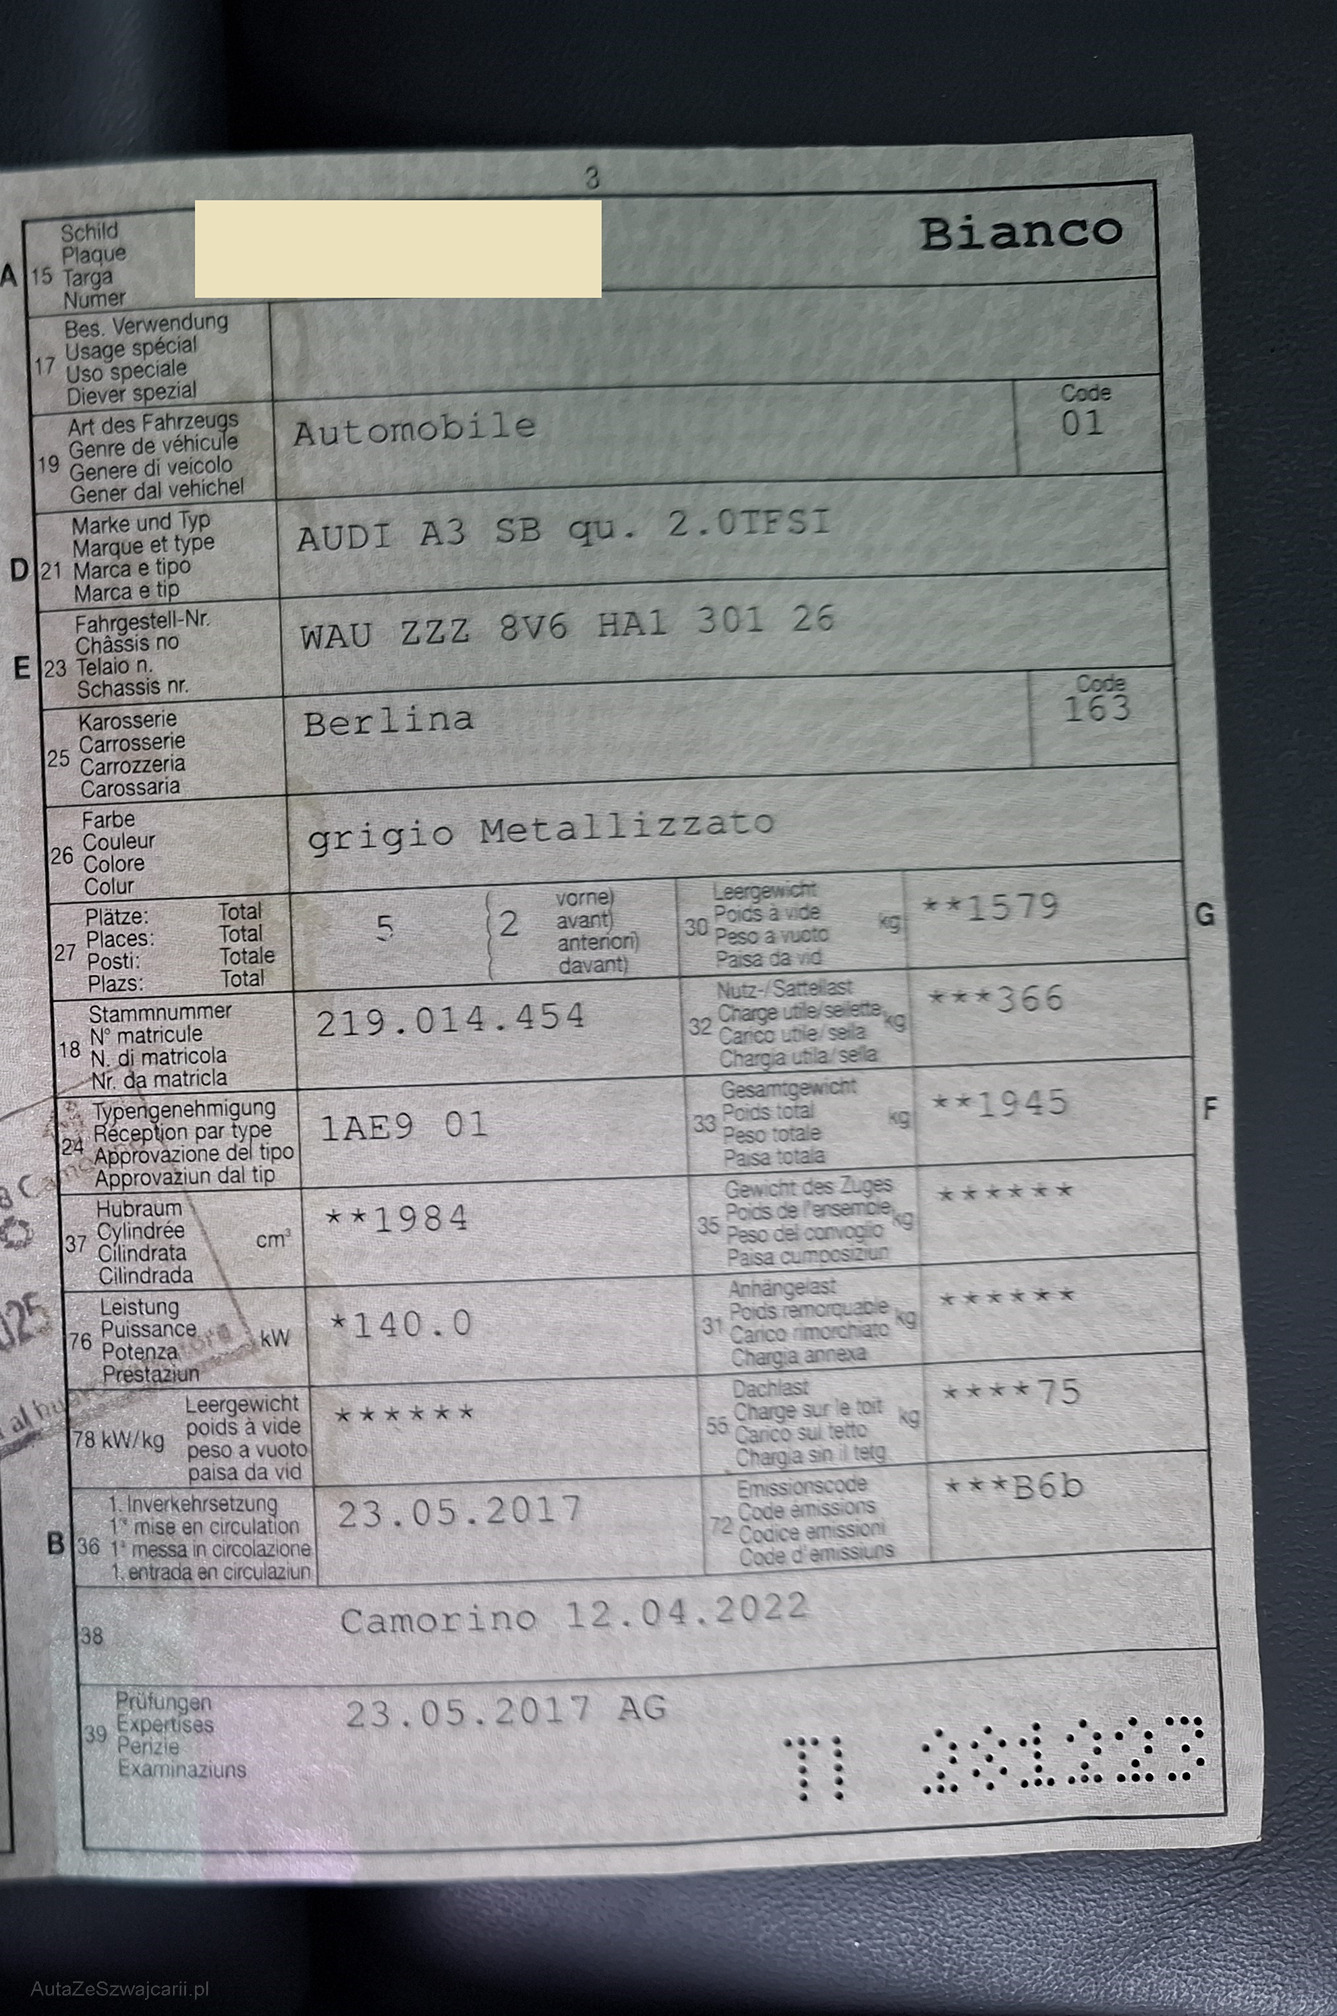 3
A 15 Schild
Plaque
Targa
Numer
Bianco
17 Bes. Verwendung
Usage spécial
Uso speciale
Diever spezial
19 Art des Fahrzeugs
Genre de véhicule
Genere di veicolo
Gener dal vehichel
Automobile
Code
01
D 21 Marke und Typ
Marque et type
Marca e tipo
Marca e tip
AUDI A3 SB qu. 2.0TFSI
E 23 Fahrgestell-Nr.
Châssis no
Telaio n.
Schassis nr.
WAU ZZZ 8V6 HA1 301 26
25 Karosserie
Carrosserie
Carrozzeria
Carossaria
Berlina
Code
163
26 Farbe
Couleur
Colore
Colur
grigio Metallizzato
27 Plätze: Total
Places: Total
Posti: Totale
Plazs: Total
5
2
vorne)
avant)
anteriori)
davant)
30 Leergewicht
Poids à vide
Peso a vuoto
Paisa da vid
kg
**1579
G
18 Stammnummer
N° matricule
N. di matricola
Nr. da matricla
219.014.454
32 Nutz-/Sattellast
Charge utile/sellette
Carico utile/sella
Chargia utila/sella
kg
***366
24 Typengenehmigung
Réception par type
Approvazione del tipo
Approvaziun dal tip
1AE9 01
33 Gesamtgewicht
Poids total
Peso totale
Paisa totala
kg
**1945
F
37 Hubraum
Cylindrée
Cilindrata
Cilindrada
cm³
**1984
35 Gewicht des Zuges
Poids de l'ensemble
Peso del convoglio
Paisa cumposiziun
kg
******
76 Leistung
Puissance
Potenza
Prestaziun
kW
*140.0
31 Anhängelast
Poids remorquable
Carico rimorchiato
Chargia annexa
kg
******
78 kW/kg
Leergewicht
poids à vide
peso a vuoto
paisa da vid
******
55 Dachlast
Charge sur le toit
Carico sul tetto
Chargia sin il tetg
kg
****75
B 36 1. Inverkehrsetzung
1re mise en circulation
1a messa in circolazione
1. entrada en circulaziun
23.05.2017
72 Emissionscode
Code émissions
Codice emissioni
Code d'emissiuns
***B6b
38
Camorino 12.04.2022
39 Prüfungen
Expertises
Perizie
Examinaziuns
23.05.2017 AG
TI 281223
AutaZeSzwajcarii.pl